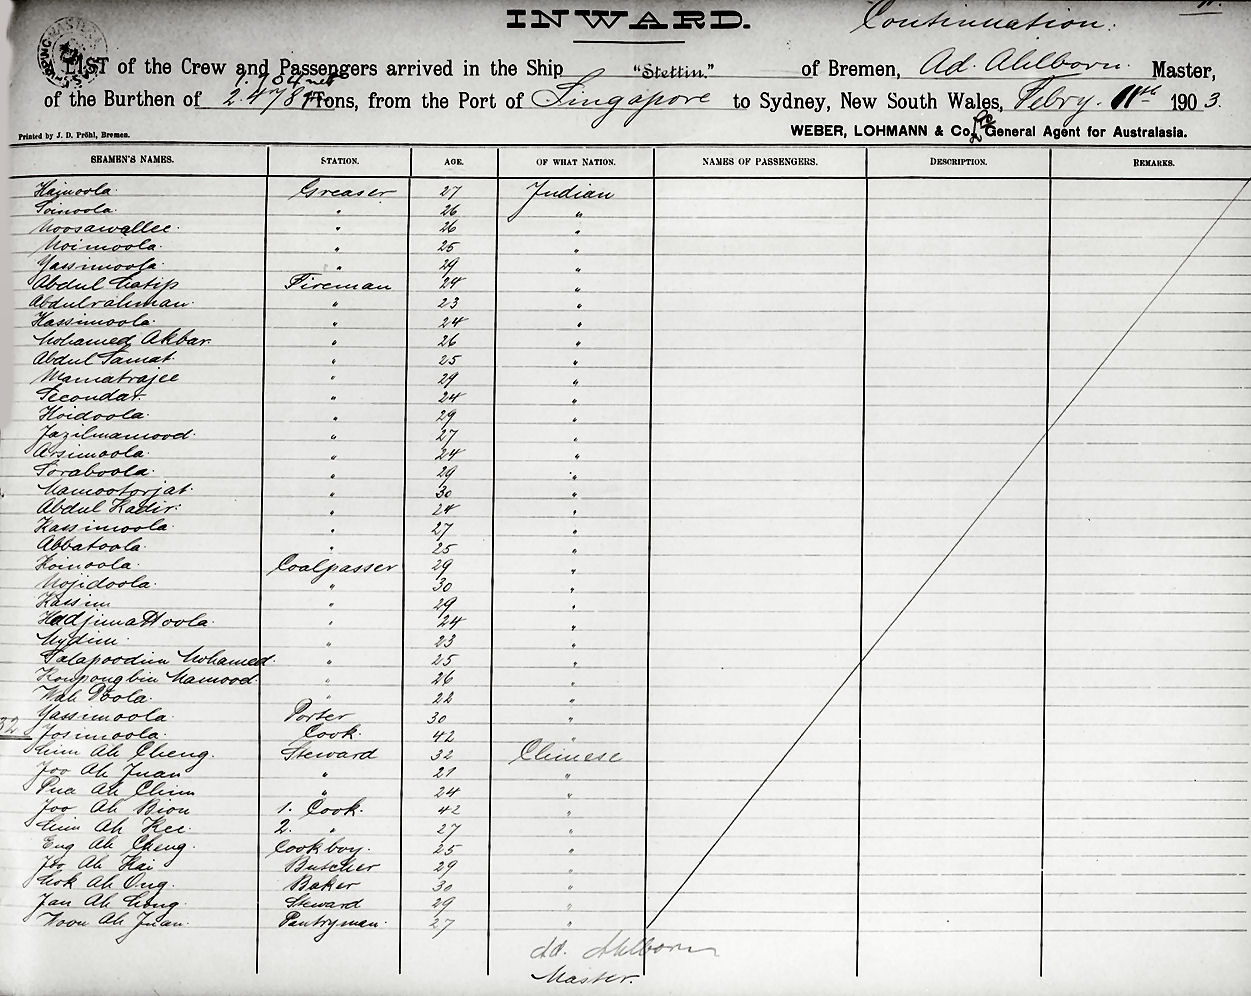 INWARD.
Continuation.
LIST of the Crew and Passengers arrived in the Ship "Stettin." of Bremen, Ad. Ahlborn. Master,
of the Burthen of Tons, from the Port of Singapore to Sydney, New South Wales, Febry. 11th 1903.
Printed by J. D. Pröhl, Bremen.
WEBER, LOHMANN & Co, General Agent for Australasia.
SEAMEN'S NAMES. STATION. AGE. OF WHAT NATION. NAMES OF PASSENGERS. DESCRIPTION. REMARKS.
Hainoola. Greaser 27 Indian
Soinoola. " 26 "
Noosawallee. " 26 "
Noimoola. " 25 "
Yassimoola. " 29 "
Abdul Latip Fireman 24 "
Abdulrahman. " 23 "
Hassimoola. " 24 "
Mohamed Akbar. " 26 "
Abdul Samat. " 25 "
Mamatrajee " 29 "
Secondar. " 24 "
Hoidoola. " 29 "
Fazilmamood. " 27 "
Arsimoola. " 24 "
Soraboola. " 29 "
Mamootorjat. " 30 "
Abdul Kadir. " 24 "
Kassimoola. " 27 "
Abbatoola. " 25 "
Koinoola. Coalpasser 29 "
Mojidoola. " 30 "
Kassim " 29 "
Hadjimattoola. " 24 "
Mydin. " 23 "
Salapoodin Mohamed. " 25 "
Konpongbin Mamood. " 26 "
Wali Doola. " 22 "
Yassimoola. Porter 30 "
Josimoola. Cook. 42 "
Lim Ah Cheng. Steward 32 Chinese
Foo Ah Juan " 21 "
Pua Ah Chim " 24 "
Foo Ah Bion 1. Cook. 42 "
Lim Ah Kee. 2. " 27 "
Eng Ah Cheng. Cookboy. 25 "
Foo Ah Hai Butcher 29 "
Lok Ah Ong. Baker 30 "
Jan Ah Leong. Steward 29 "
Woon Ah Juan. Pantryman. 27 "
Ad. Ahlborn
Master.